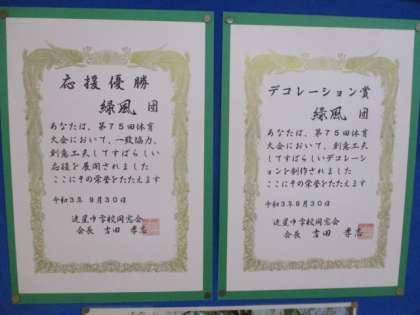 応援優勝
緑風 団
あなたは、第75回体育
大会において、一致協力、
創意工夫してすばらしい
応援を展開されました
ここにその栄誉をたたえます
令和3年 9月30日
中学校同窓会
会長 吉田 孝志
デコレーション賞
緑風 団
あなたは、第75回体育
大会において、創意工夫
してすばらしいデコレーシ
ョンを制作されました
ここにその栄誉をたたえます
令和3年9月30日
中学校同窓会
会長 吉田 孝志